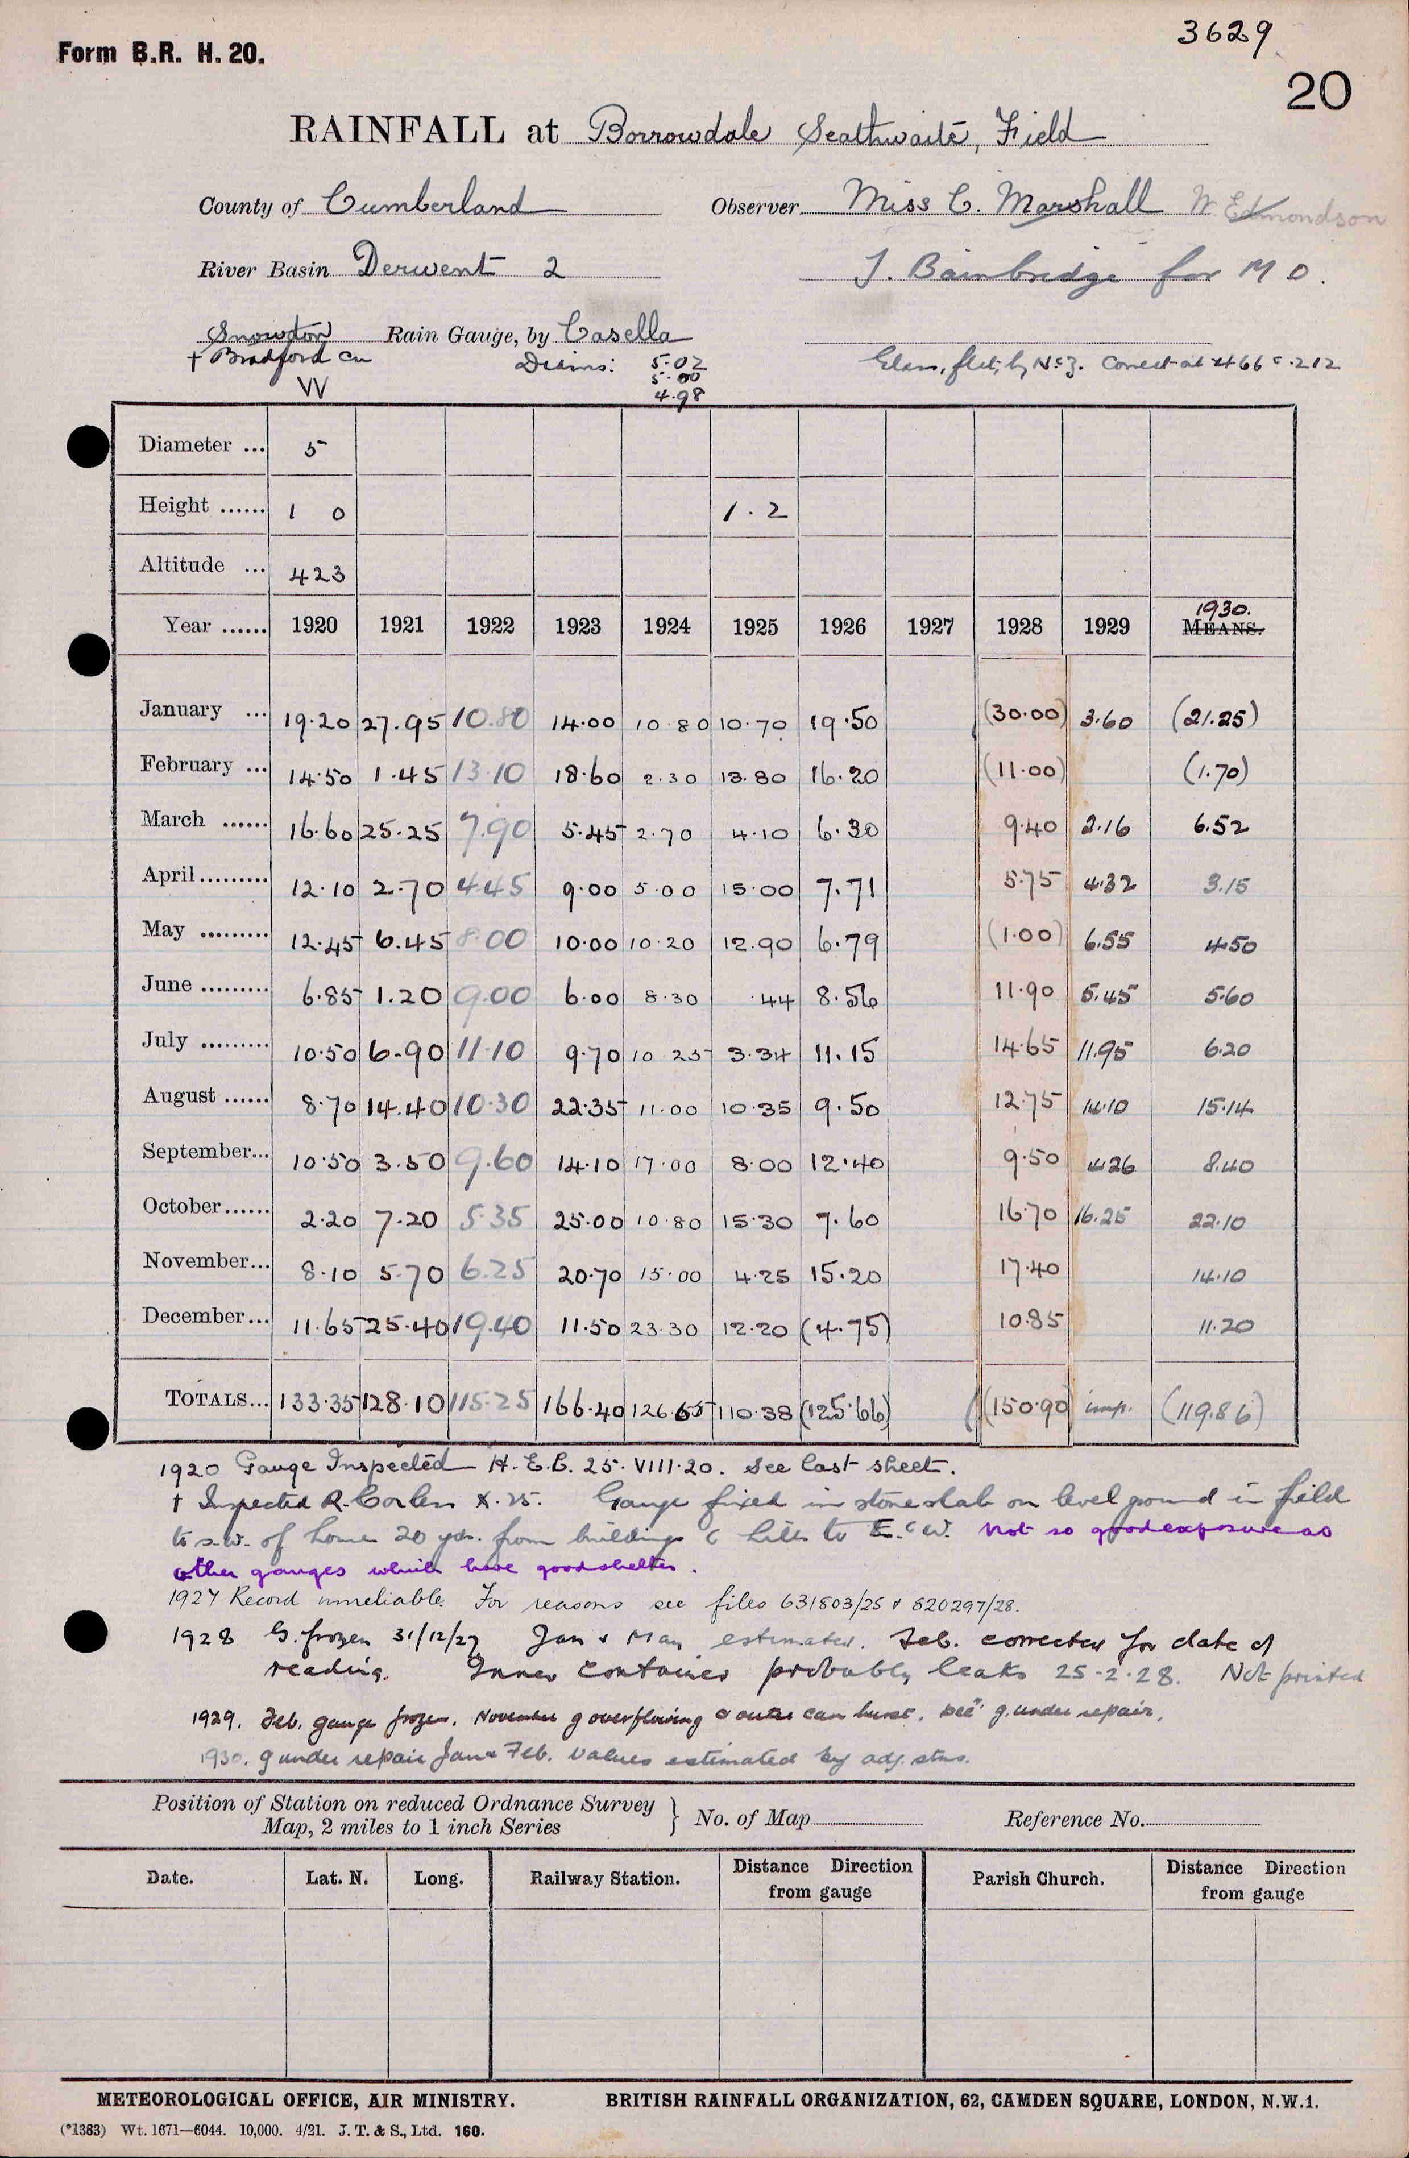 3629
Form B.R. H. 20.
20
RAINFALL at Borrowdale Seathwaite, Field
County of Cumberland Observer Miss C. Marshall W Edmondson
River Basin Derwent 2 J. Bainbridge for M O.
Snowdon Rain Gauge, by Casella
+ Bradford Cu Diams: 5.02
5.00
VV 4.98
Glass, flet, by No 3. Correct at .466 & .212
Diameter ... 5
Height ...... 1 0 1.2
Altitude ... 423
Year ...... 1920 1921 1922 1923 1924 1925 1926 1927 1928 1929 1930. MEANS.
January ... 19.20 27.95 10.80 14.00 10.80 10.70 19.50 (30.00) 3.60 (21.25)
February ... 14.50 1.45 13.10 18.60 2.30 13.80 16.20 (11.00) (1.70)
March ...... 16.60 25.25 7.90 5.45 2.70 4.10 6.30 9.40 2.16 6.52
April ......... 12.10 2.70 4.45 9.00 5.00 15.00 7.71 5.75 4.32 3.15
May ......... 12.45 6.45 8.00 10.00 10.20 12.90 6.79 (1.00) 6.55 4.50
June ......... 6.85 1.20 9.00 6.00 8.30 .44 8.56 11.90 5.45 5.60
July ......... 10.50 6.90 11.10 9.70 10 25 3.34 11.15 14.65 11.95 6.20
August ...... 8.70 14.40 10.30 22.35 11.00 10.35 9.50 12.75 14.10 15.14
September... 10.50 3.50 9.60 14.10 17.00 8.00 12.40 9.50 4.26 8.40
October...... 2.20 7.20 5.35 25.00 10.80 15.30 7.60 16.70 16.25 22.10
November... 8.10 5.70 6.25 20.70 15.00 4.25 15.20 17.40 14.10
December... 11.65 25.40 19.40 11.50 23.30 12.20 (4.75) 10.85 11.20
TOTALS... 133.35 128.10 115.25 166.40 126.65 110.38 (125.66) (150.90) imp. (119.86)
1920 Gauge Inspected H.E.C. 25.VIII.20. See last sheet.
† Inspected R. Corless X.25. Gauge fixed in stone slab on level ground in field
to s.w. of house 20 yds. from buildings & hills to E. & W. Not so good exposure as
other gauges which have good shelter.
1927 Record unreliable. For reasons see files 631803/25 & 820297/28.
1928 G. frozen 31/12/27 Jan & May estimated. Feb. corrected for date of
reading. Inner container probably leaks 25-2-28. Not printed
1929. Feb. gauge frozen. November g overflowing & outer can burst. Decr g. under repair.
1930. g under repair Jan & Feb. values estimated by adj. stns.
Position of Station on reduced Ordnance Survey
Map, 2 miles to 1 inch Series } No. of Map Reference No.
Date. Lat. N. Long. Railway Station. Distance Direction from gauge Parish Church. Distance Direction from gauge
METEOROLOGICAL OFFICE, AIR MINISTRY. BRITISH RAINFALL ORGANIZATION, 62, CAMDEN SQUARE, LONDON, N.W.1.
(*1383) Wt. 1671—6044. 10,000. 4/21. J. T. & S., Ltd. 160.